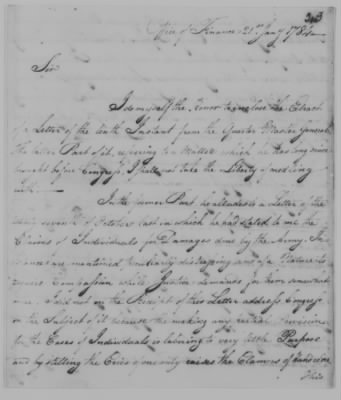 Office of Finance 21st Jany 1784
Sir
I do myself the Honor to enclose the Extract
of a Letter of the tenth Instant from the Quarter Master General
the latter Part of it, referring to a Matter which he has long since
brought before Congress, I shall not take the Liberty of meddling
with
In the former Part he alludes to a Letter of the
twenty seventh of October last in which he had stated to me the
Claims of Individuals for Damages done by the Army. In
stances are mentioned, peculiarly distressing and of a Nature to
require Compassion while Justice demands for them somewhat
more. I did not on the Receipt of this Letter address Congress
on the Subject of it because the making any partial Provision
for the Cases of Individuals is laboring to very little Purpose
and by stilling the Cries of one only raises the Clamors of
This